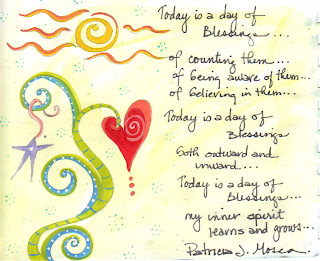 Today is a day of
Blessings...
of counting them...
of being aware of them...
of believing in them...
Today is a day of
Blessings
both outward and
inward...
Today is a day of
Blessings...
my inner spirit
learns and grows...
Patricia J. Mosca